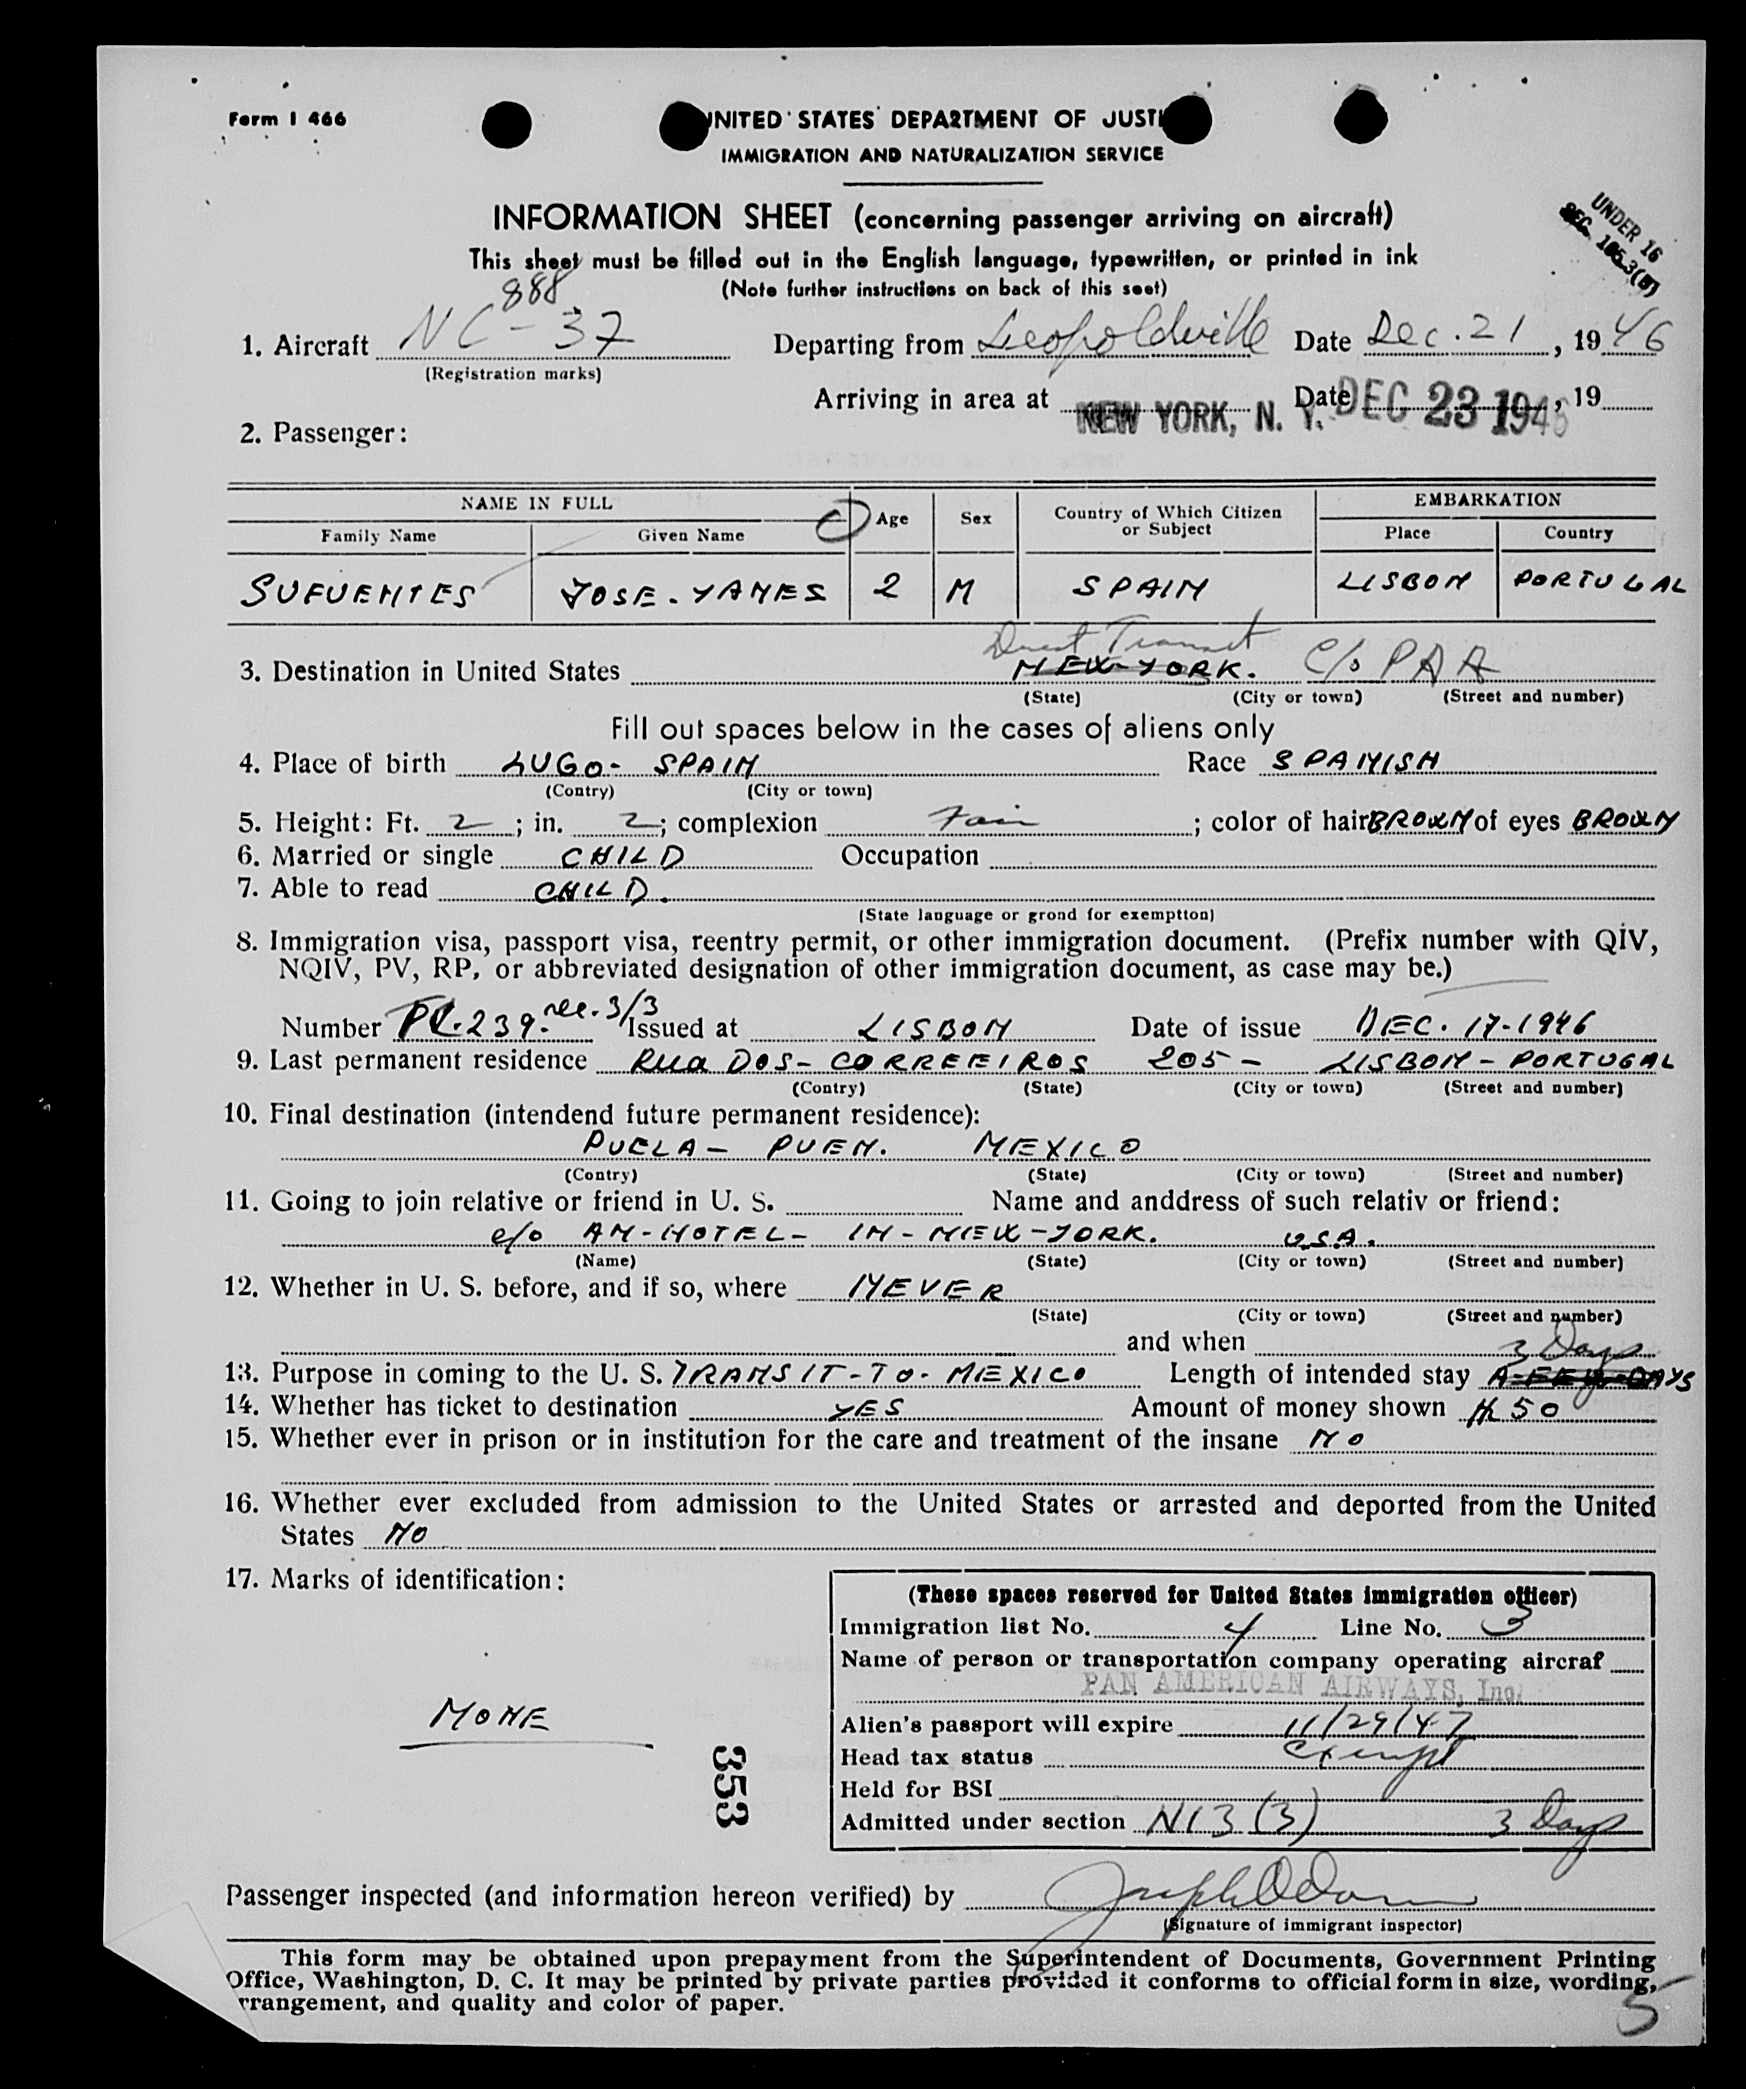 Form I 466
UNITED STATES DEPARTMENT OF JUSTI
IMMIGRATION AND NATURALIZATION SERVICE
INFORMATION SHEET (concerning passenger arriving on aircraft)
UNDER 16
SEC. 165.3(B)
This sheet must be filled out in the English language, typewritten, or printed in ink
(Note further instructions on back of this seet)
888
1. Aircraft NC-37 Departing from Leopoldville Date Dec. 21, 1946
(Registration marks)
Arriving in area at NEW YORK, N. Y. Date DEC 23 1946, 19
2. Passenger:
NAME IN FULL Age Sex Country of Which Citizen or Subject EMBARKATION
Family Name Given Name Place Country
SUFUENTES JOSE-YANES 2 M SPAIN LISBON PORTUGAL
Direct Transit
3. Destination in United States NEW-YORK. c/o PAA
(State) (City or town) (Street and number)
Fill out spaces below in the cases of aliens only
4. Place of birth LUGO- SPAIN Race SPANISH
(Contry) (City or town)
5. Height: Ft. 2; in. 2; complexion Fair; color of hair BROWN of eyes BROWN
6. Married or single CHILD Occupation
7. Able to read CHILD.
(State language or grond for exemptton)
8. Immigration visa, passport visa, reentry permit, or other immigration document. (Prefix number with QIV,
NQIV, PV, RP, or abbreviated designation of other immigration document, as case may be.)
Number 239. 3/3 Issued at LISBON Date of issue DEC. 17-1946
9. Last permanent residence Rua DOS-CORREEIROS 205- LISBON-PORTUGAL
(Contry) (State) (City or town) (Street and number)
10. Final destination (intendend future permanent residence):
PUELA- PUEN. MEXICO
(Contry) (State) (City or town) (Street and number)
11. Going to join relative or friend in U. S. Name and anddress of such relativ or friend:
c/o AN-HOTEL- IN-NEW-YORK. U.S.A.
(Name) (State) (City or town) (Street and number)
12. Whether in U. S. before, and if so, where NEVER
(State) (City or town) (Street and number)
and when
3 Days
13. Purpose in coming to the U. S. TRANSIT-TO-MEXICO Length of intended stay A-FEW-DAYS
14. Whether has ticket to destination YES Amount of money shown 50
15. Whether ever in prison or in institution for the care and treatment of the insane NO
16. Whether ever excluded from admission to the United States or arrested and deported from the United
States NO
17. Marks of identification:
NONE
353
(These spaces reserved for United States immigration officer)
Immigration list No. 4 Line No. 3
Name of person or transportation company operating aircraf
PAN AMERICAN AIRWAYS, Inc.
Alien's passport will expire 11/29/47
Head tax status exempt
Held for BSI
Admitted under section N13(3) 3 Days
Passenger inspected (and information hereon verified) by
(Signature of immigrant inspector)
This form may be obtained upon prepayment from the Superintendent of Documents, Government Printing
Office, Washington, D. C. It may be printed by private parties provided it conforms to official form in size, wording,
rrangement, and quality and color of paper.
5